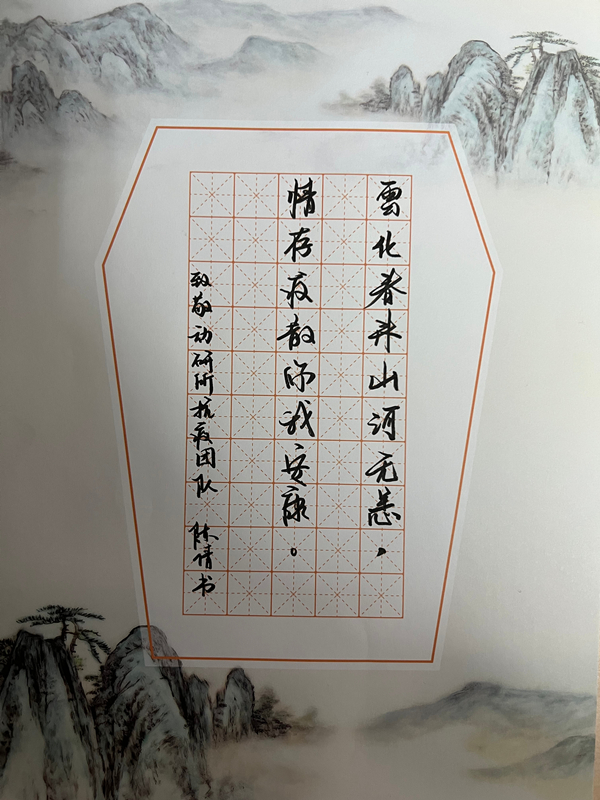 雲化春来山河无恙，
情存疫散你我安康。
致敬动研所抗疫团队 陈倩书